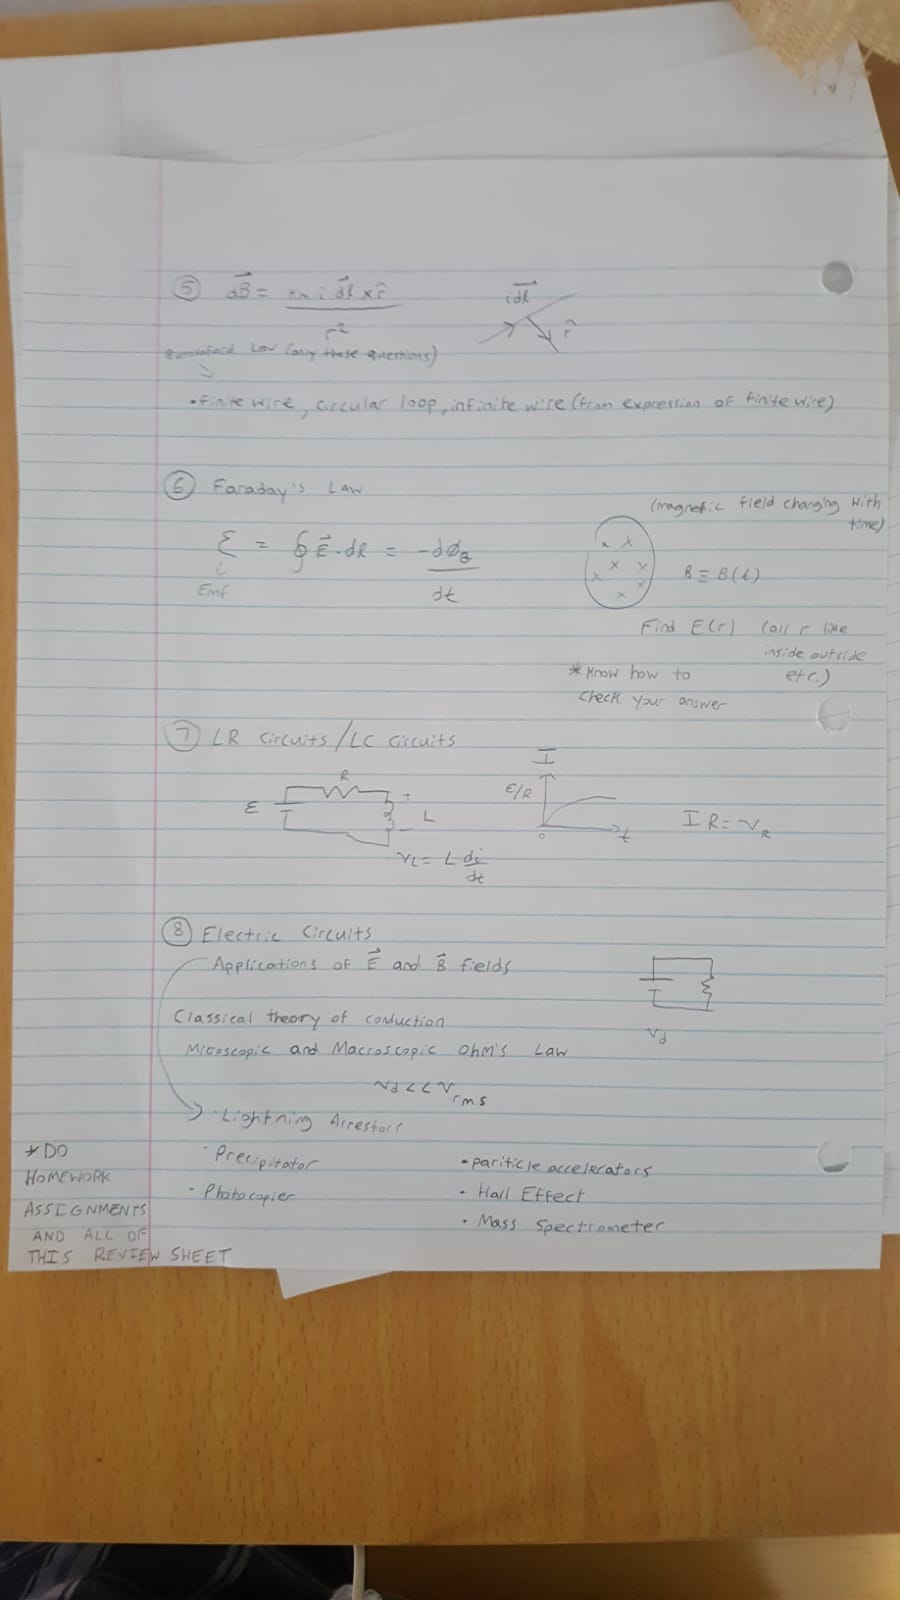 ⑤ dB⃗ = km i dl⃗ x r̂ / r²
i dl⃗
r̂
Law (only these questions)
• finite wire, circular loop, infinite wire (from expression of finite wire)
⑥ Faraday's Law
(magnetic field changing with time)
ℰ = ∮ E⃗ . dl = -dΦB / dt
Emf
x x x x x x x
B ≡ B(t)
Find E(r) (all r like inside outside etc.)
* Know how to check your answer
⑦ LR Circuits / LC circuits
R
ε
+
-
L
VL = L di/dt
I
ε/R
0
t
I R = VR
⑧ Electric Circuits
Applications of E⃗ and B⃗ fields
Classical theory of conduction
Vd
Microscopic and Macroscopic Ohm's Law
Vd << Vrms
• Lightning Arrestors
• Precipitator
• Photocopier
• pariticle accelerators
• Hall Effect
• Mass Spectrometer
* DO
HOMEWORK
ASSIGNMENTS
AND ALL OF
THIS REVIEW SHEET